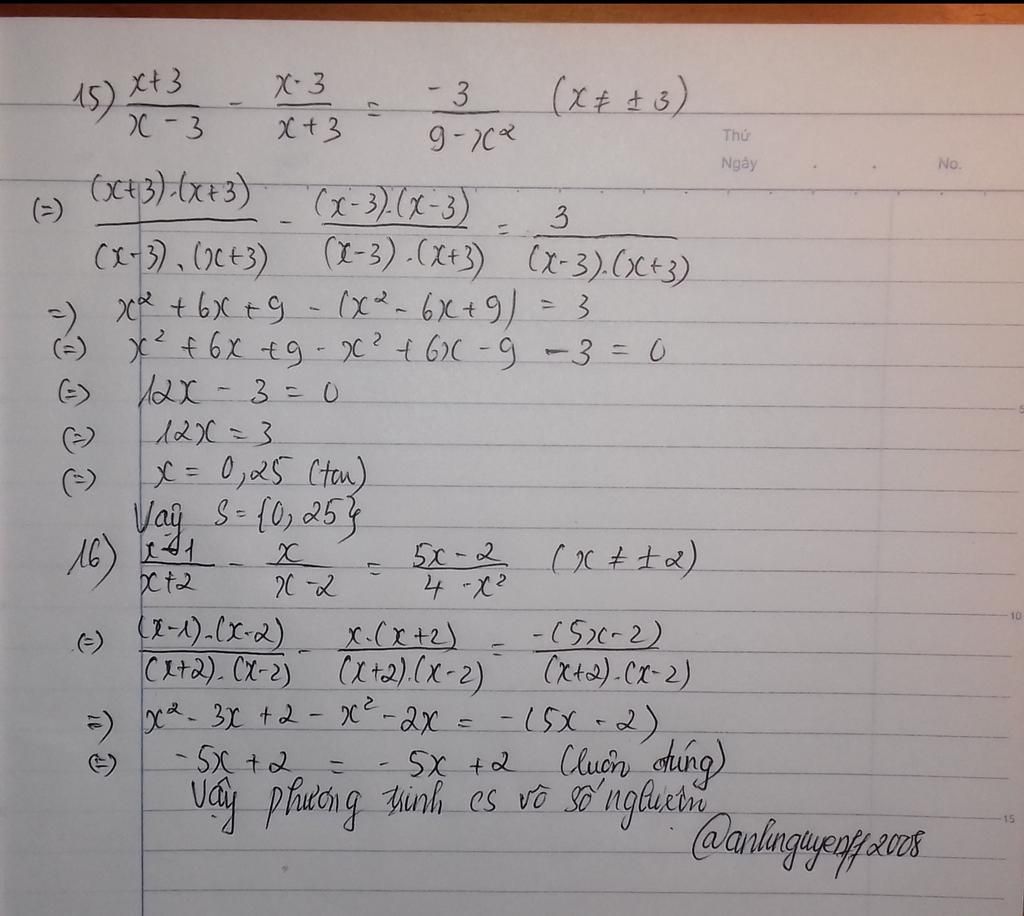 15) (x+3)/(x-3) - (x-3)/(x+3) = -3/(9-x²) (x ≠ ±3)
Thứ
Ngày . . No.
(=) ((x+3).(x+3))/((x-3).(x+3)) - ((x-3).(x-3))/((x-3).(x+3)) = 3/((x-3).(x+3))
=) x² + 6x + 9 - (x² - 6x + 9) = 3
(=) x² + 6x + 9 - x² + 6x - 9 - 3 = 0
(=) 12x - 3 = 0
(=) 12x = 3
(=) x = 0,25 (tm)
Vậy S = {0,25}
16) (x-1)/(x+2) - x/(x-2) = (5x-2)/(4-x²) (x ≠ ±2)
(=) ((x-1).(x-2))/((x+2).(x-2)) - (x.(x+2))/((x+2).(x-2)) = (-(5x-2))/((x+2).(x-2))
=) x² - 3x + 2 - x² - 2x = -(5x - 2)
(=) -5x + 2 = -5x + 2 (luôn đúng)
Vậy phương trình có vô số nghiệm
5
10
15